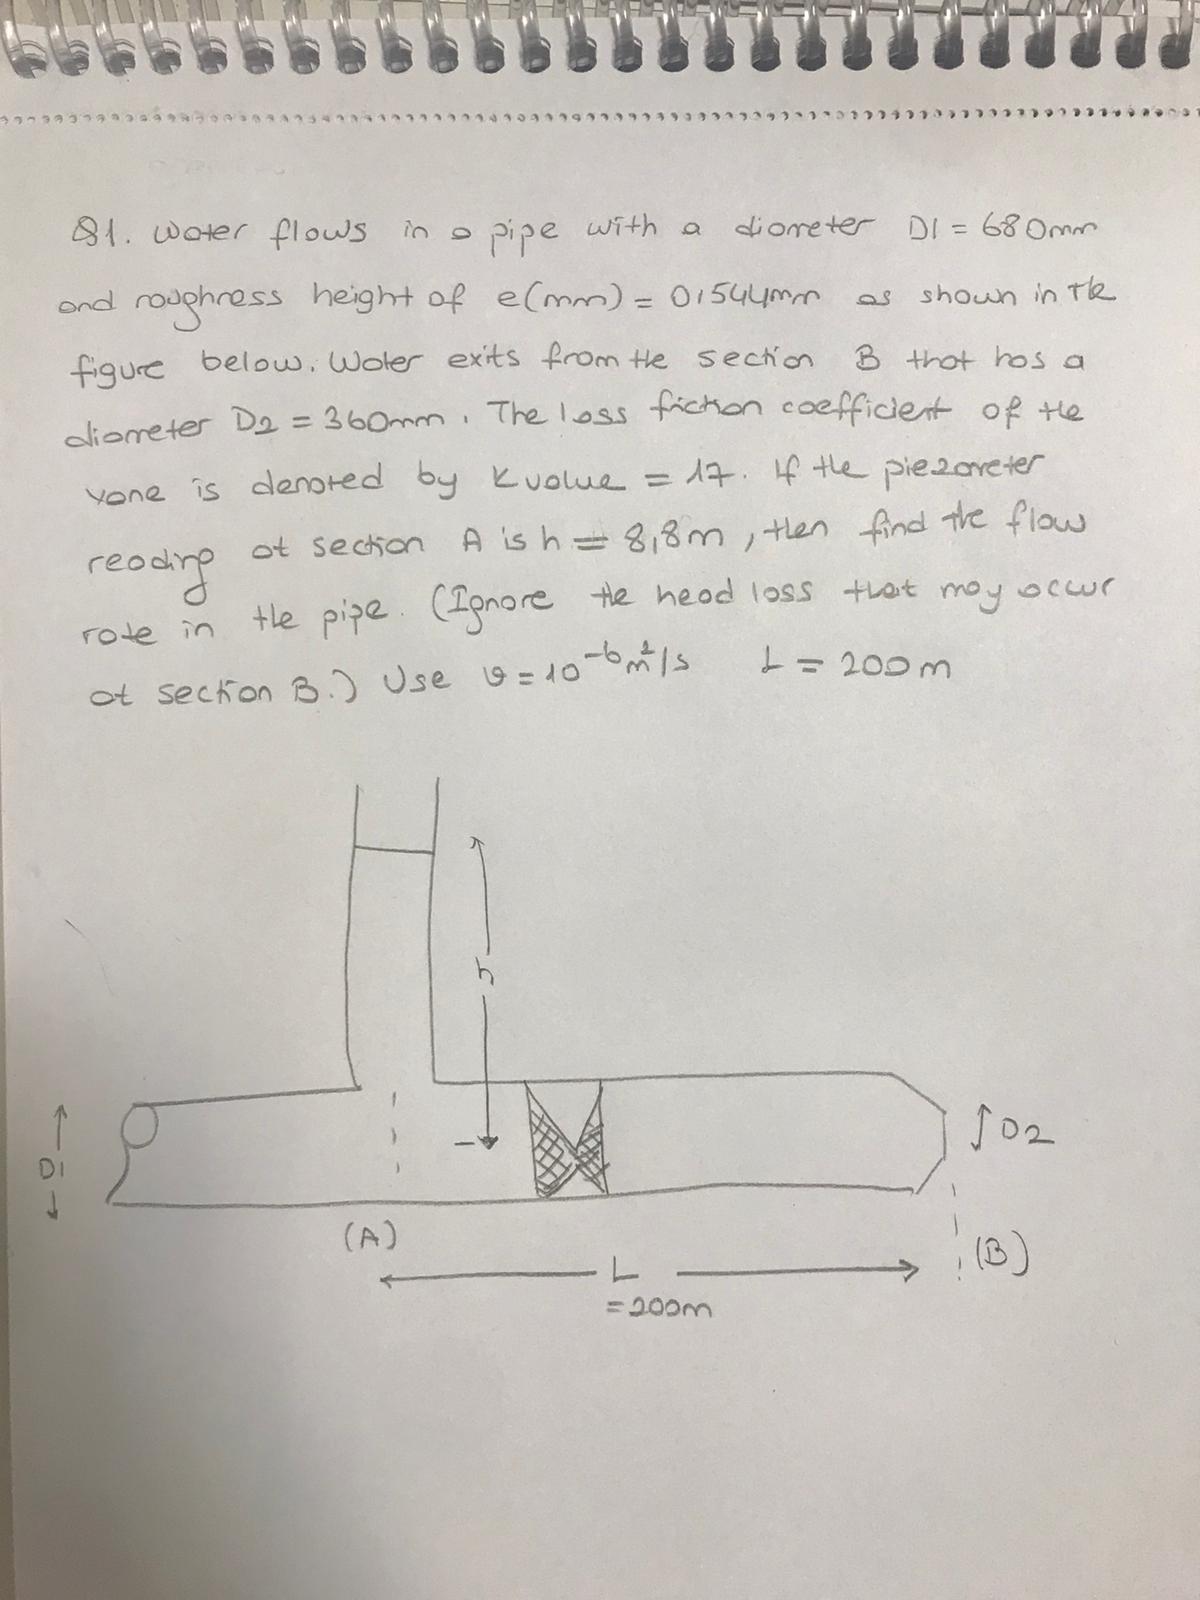 Q1. Water flows in a pipe with a diameter D1 = 680mm
and roughness height of e(mm) = 0,544mm as shown in the
figure below. Water exits from the section B that has a
diameter D2 = 360mm. The loss friction coefficient of the
vane is denoted by Kvalue = 17. If the piezometer
reading at section A is h = 8,8m, then find the flow
rate in the pipe. (Ignore the head loss that may occur
at section B.) Use ϑ = 10⁻⁶m²/s L = 200m
h
D1
D2
(A)
(B)
L
=200m